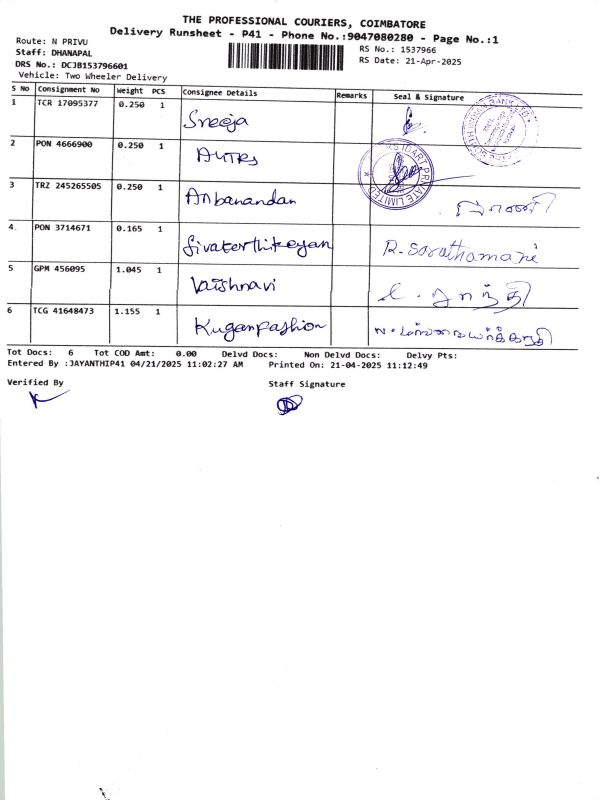 THE PROFESSIONAL COURIERS, COIMBATORE
Delivery Runsheet - P41 - Phone No.:9047080280 - Page No.:1
Route: N PRIVU
RS No.: 1537966
Staff: DHANAPAL
RS Date: 21-Apr-2025
DRS No.: DCJB153796601
Vehicle: Two Wheeler Delivery
S No Consignment No Weight PCS Consignee Details Remarks Seal & Signature
1 TCR 17095377 0.250 1 Sreeja
2 PON 4666900 0.250 1
3 TRZ 245265505 0.250 1 Anbanandan
PRIVATE LIMITED
4. PON 3714671 0.165 1 Sivakarthikeyan R. Sarathamani
5 GPM 456095 1.045 1 Vaishnavi
6 TCG 41648473 1.155 1 Kuganfashion
Tot Docs: 6 Tot COD Amt: 0.00 Delvd Docs: Non Delvd Docs: Delvy Pts:
Entered By :JAYANTHIP41 04/21/2025 11:02:27 AM Printed On: 21-04-2025 11:12:49
Verified By Staff Signature